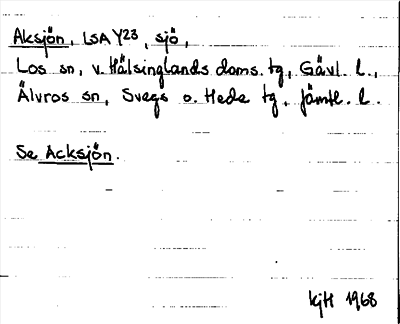 Aksjön, LSA Y23, sjö,
Los sn, v. Hälsinglands doms. tg, Gävl. l.,
Älvros sn, Svegs o. Hede tg, Jämtl. l.
Se Acksjön.
KjH 1968